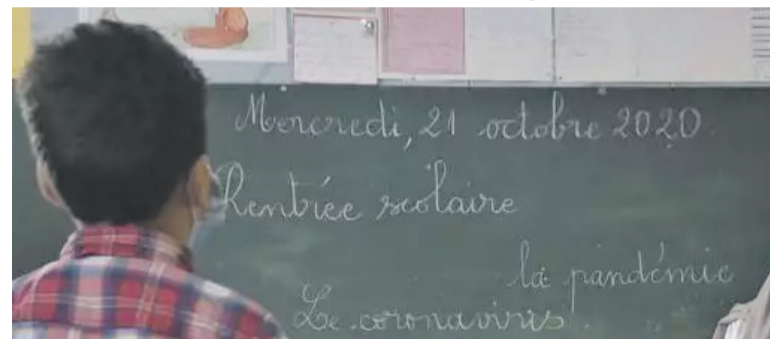 Mercredi, 21 octobre 2020
Rentrée scolaire
la pandémie
Le coronavirus